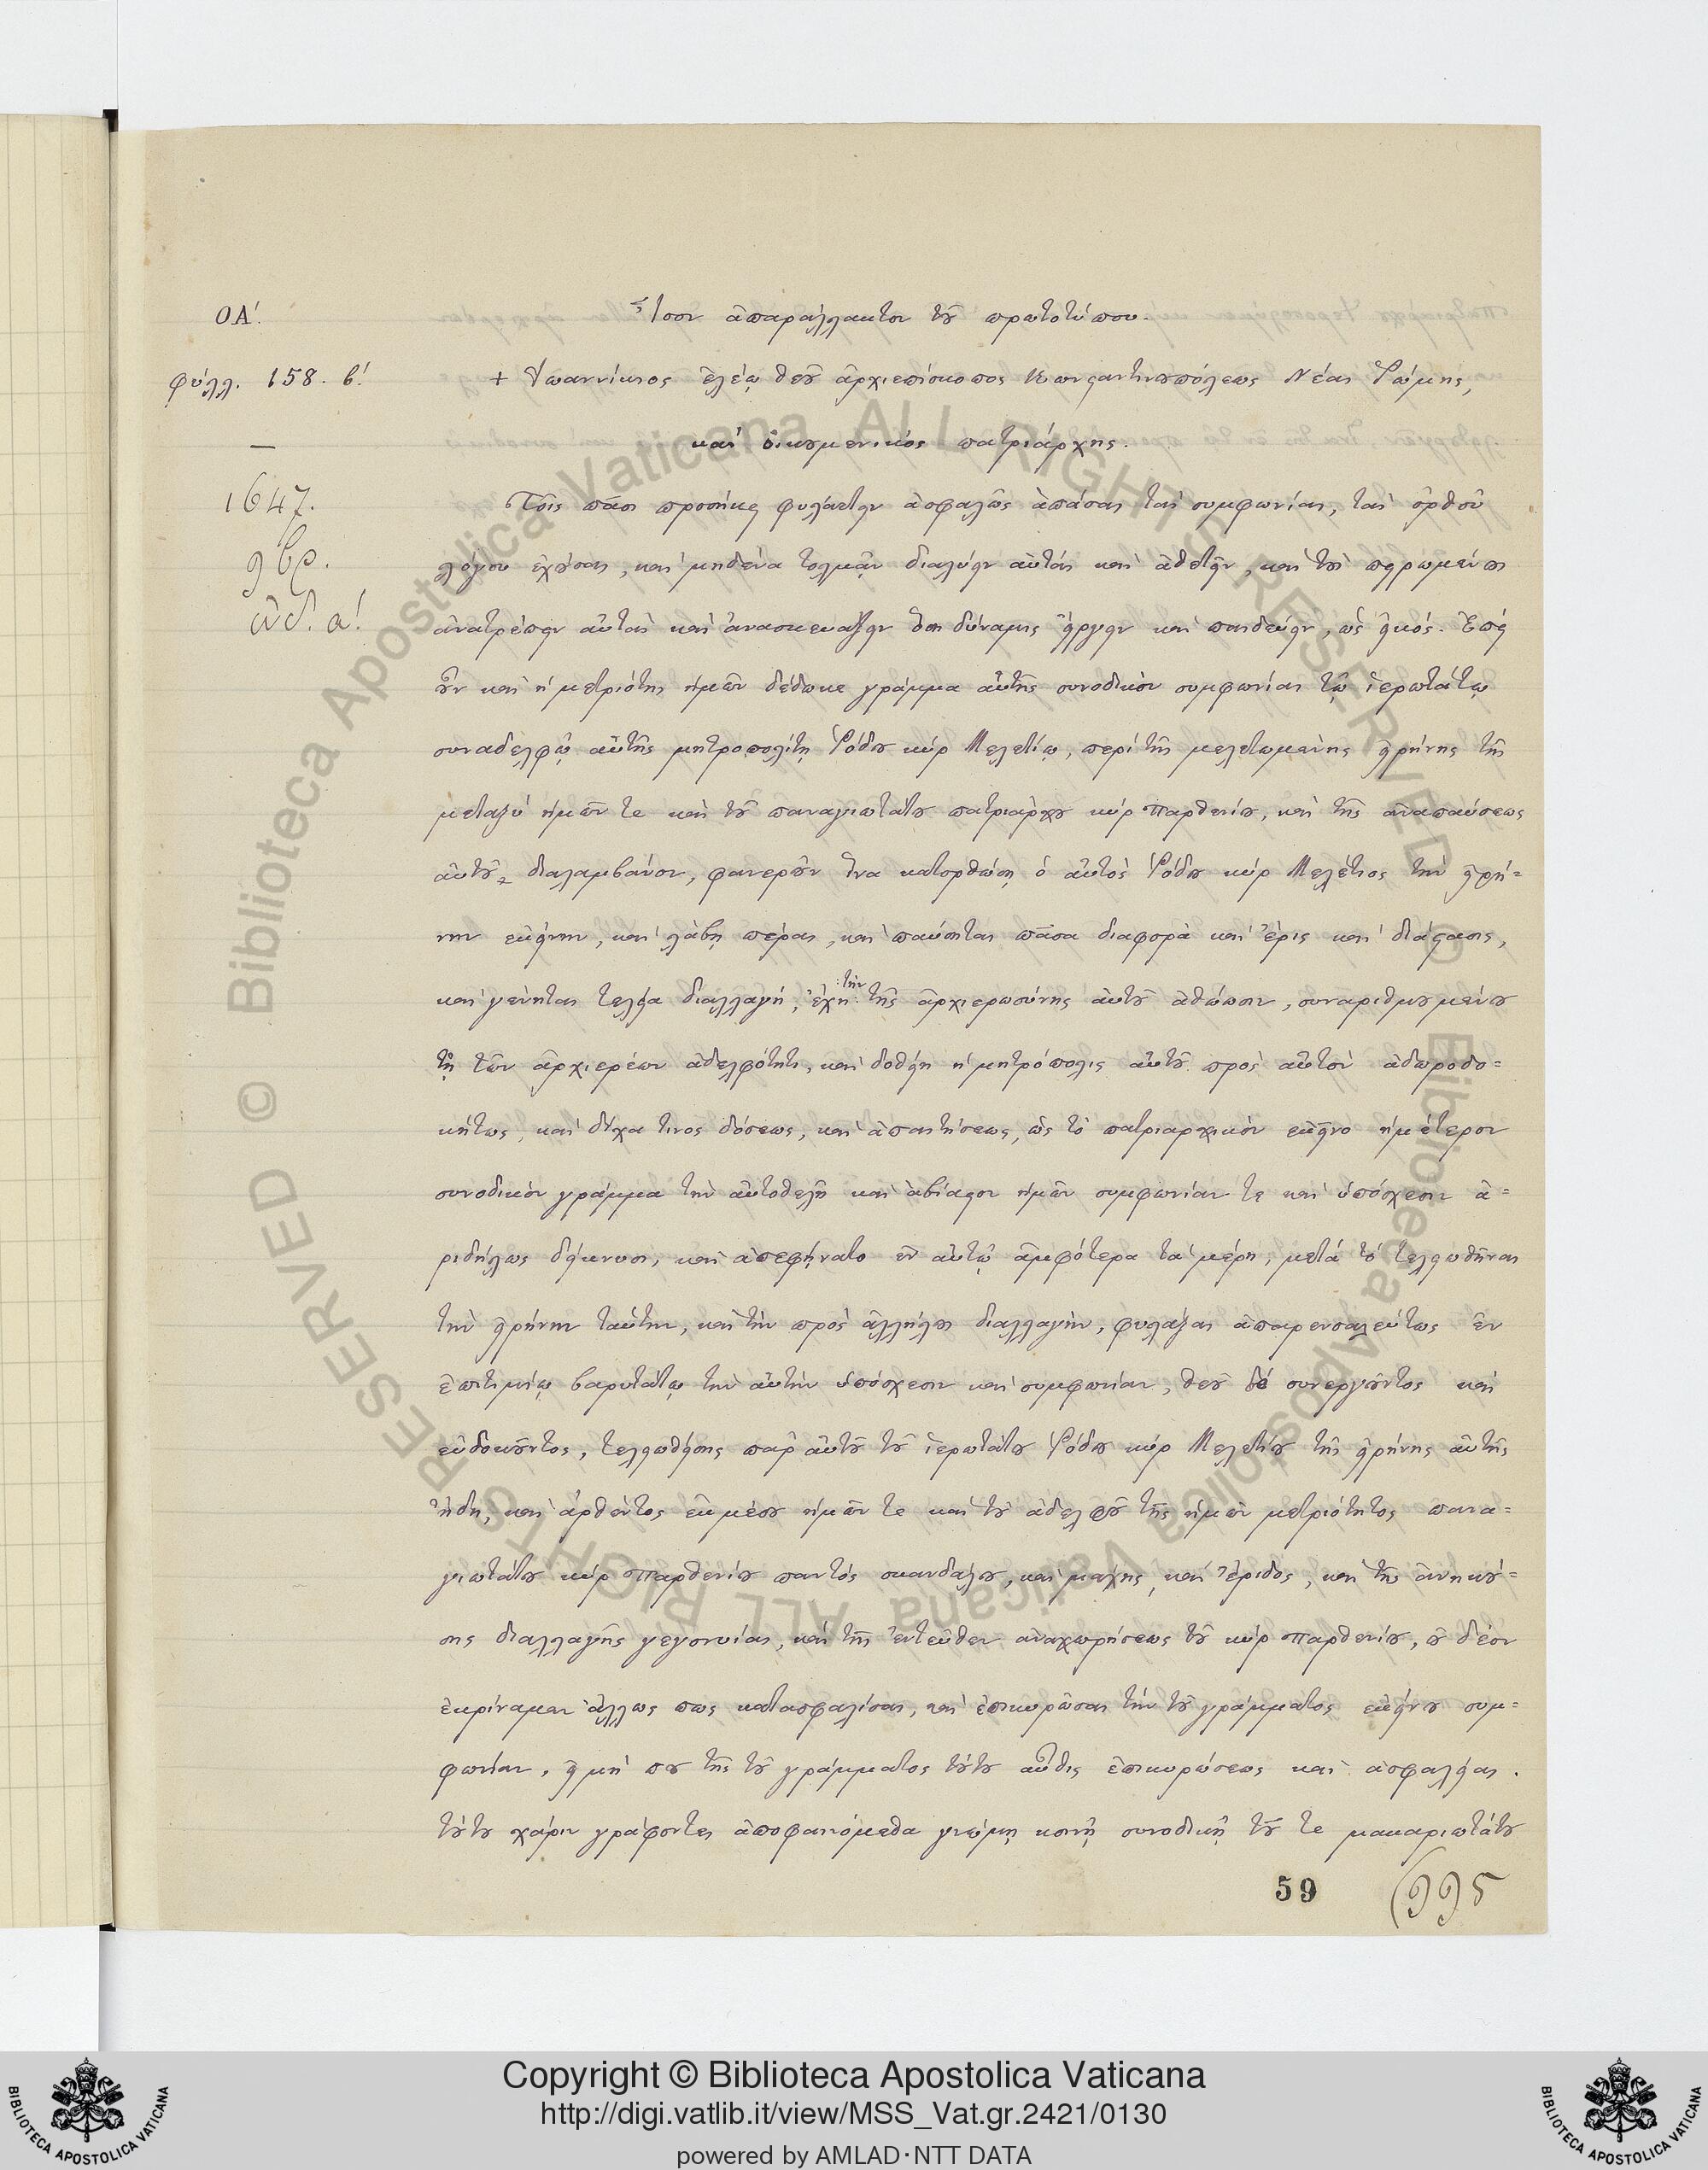 ΟΑ΄.
Ἶσον ἀπαράλλακτον τοῦ πρωτοτύπου.
φύλλ. 158. β΄.
+ Ἰωαννίκιος ἐλέῳ θεοῦ ἀρχιεπίσκοπος Κωνσταντινουπόλεως Νέας Ῥώμης,
καὶ οἰκουμενικὸς πατριάρχης.
1647.
9βρ.
ἰνδ. α΄.
Τοῖς πᾶσι προσήκει φυλάττειν ἀσφαλῶς ἁπάσας τὰς συμφωνίας, τὰς ὀρθοῦ
λόγου ἐχούσας, καὶ μηδένα τολμᾶν διαλύειν αὐτὰς καὶ ἀθετεῖν, καὶ τοὺς πειρωμένους
ἀνατρέπειν αὐτὰς καὶ ἀνασκευάζειν ὅση δύναμις εἴργειν καὶ παιδεύειν, ὡς εἰκός. Ἐπεὶ
οὖν καὶ ἡ μετριότης ἡμῶν δέδωκε γράμμα αὐτῆς συνοδικὸν συμφωνίας τῷ ἱερωτάτῳ
συναδελφῷ αὐτῆς μητροπολίτῃ Ῥόδου κὺρ Μελετίῳ, περὶ τῆς μελετωμένης εἰρήνης τῆς
μεταξὺ ἡμῶν τε καὶ τοῦ παναγιωτάτου πατριάρχου κὺρ Παρθενίου, καὶ τῆς ἀναπαύσεως
αὐτοῦ, διαλαμβάνον, φανερῶν ἵνα κατορθώσῃ ὁ αὐτὸς Ῥόδου κὺρ Μελέτιος τὴν εἰρή=
νην ἐκείνην, καὶ λάβῃ πέρας, καὶ παύσηται πᾶσα διαφορὰ καὶ ἔρις καὶ διάστασις,
καὶ γένηται τελεία διαλλαγή, ἔχῃ :τὴν: τῆς ἀρχιερωσύνης αὐτοῦ ἀθώωσιν, συναριθμουμένου
τῇ τῶν ἀρχιερέων ἀδελφότητι, καὶ δοθείη ἡ μητρόπολις αὐτοῦ πρὸς αὐτὸν ἀδωροδο=
κήτως, καὶ δίχα τινος δόσεως, καὶ ἀπαιτήσεως, ὡς τὸ πατριαρχικὸν ἐκεῖνο ἡμέτερον
συνοδικὸν γράμμα τὴν αὐτοθελῆ καὶ ἀβίαστον ἡμῶν συμφωνίαν τε καὶ ὑπόσχεσιν ἀ=
ριδήλως δείκνυσι, καὶ ἀπεφήνατο ἐν αὐτῷ ἀμφότερα τὰ μέρη, μετὰ τὸ τελειωθῆναι
τὴν εἰρήνην ταύτην, καὶ τὴν πρὸς ἀλλήλους διαλλαγὴν, φυλάξαι ἀπαρενσαλεύτως ἐν
ἐπιτιμίῳ βαρυτάτῳ τὴν αὐτὴν ὑπόσχεσιν καὶ συμφωνίαν, θεοῦ δὲ συνεργοῦντος καὶ
εὐδοκοῦντος, τελειωθείσης παρ' αὐτοῦ τοῦ ἱερωτάτου Ῥόδου κὺρ Μελετίου τῆς εἰρήνης αὐτῆς
ἤδη, καὶ ἀρθέντος ἐκ μέσου ἡμῶν τε καὶ τοῦ ἀδελφοῦ τῆς ἡμῶν μετριότητος πανα=
γιωτάτου κὺρ Παρθενίου παντὸς σκανδάλου, καὶ μάχης, καὶ ἔριδος, καὶ τῆς ἀνηκού=
σης διαλλαγῆς γεγονυίας, καὶ τῆς ἐντεῦθεν ἀναχωρήσεως τοῦ κὺρ Παρθενίου, οὐ δέον
ἐκρίναμεν ἄλλως πως κατασφαλίσαι, καὶ ἐπικυρῶσαι τὴν τοῦ γράμματος ἐκείνου συμ=
φωνίαν, εἰ μή που τῆς τοῦ γράμματος τούτου αὖθις ἐπικυρώσεως καὶ ἀσφαλείας.
τούτου χάριν γράφοντες ἀποφαινόμεθα γνώμῃ κοινῇ συνοδικῇ τοῦ τε μακαριωτάτου
59
(995
Copyright © Biblioteca Apostolica Vaticana
http://digi.vatlib.it/view/MSS_Vat.gr.2421/0130
powered by AMLAD·NTT DATA
BIBLIOTECA APOSTOLICA VATICANA
BIBLIOTECA APOSTOLICA VATICANA
© Biblioteca Apostolica Vaticana ALL RIGHTS RESERVED © Biblioteca Apostolica Vaticana ALL RIGHTS RESERVED